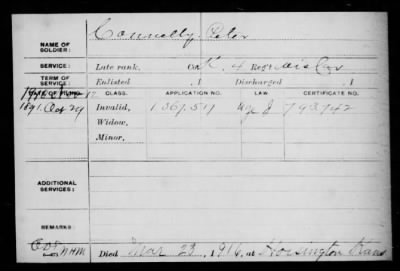 NAME OF SOLDIER: Connelly, Peter
SERVICE: Late rank, Co. K, 4 Reg't Mo Cav
TERM OF SERVICE: Enlisted , 1 Discharged , 1
DATE OF FILING. CLASS. APPLICATION NO. LAW. CERTIFICATE NO.
1891. Oct 29 Invalid, 1.067.517 793742
Widow,
Minor,
ADDITIONAL SERVICES:
REMARKS:
Died Mar 23, 1916, at Hoisington Kans